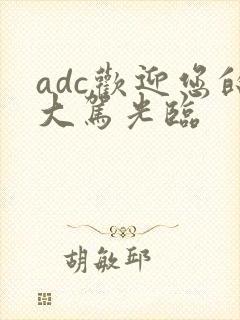 adc歡迎您的
大駕光臨
胡敏邱